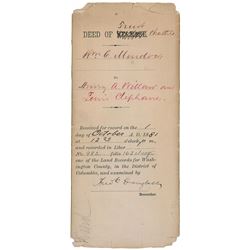 Trust
DEED OF RELEASE Chattels
Wm C. Murdock
to
Henry A. Willard an
Lewis Clephane
Received for record on the 1
day of October A. D. 1881
at 12.20 o'clock M
and recorded in Liber
No. 982 folio 162 et seq
one of the Land Records for Wash-
ington County, in the District of
Columbia, and examined by
Recorder.